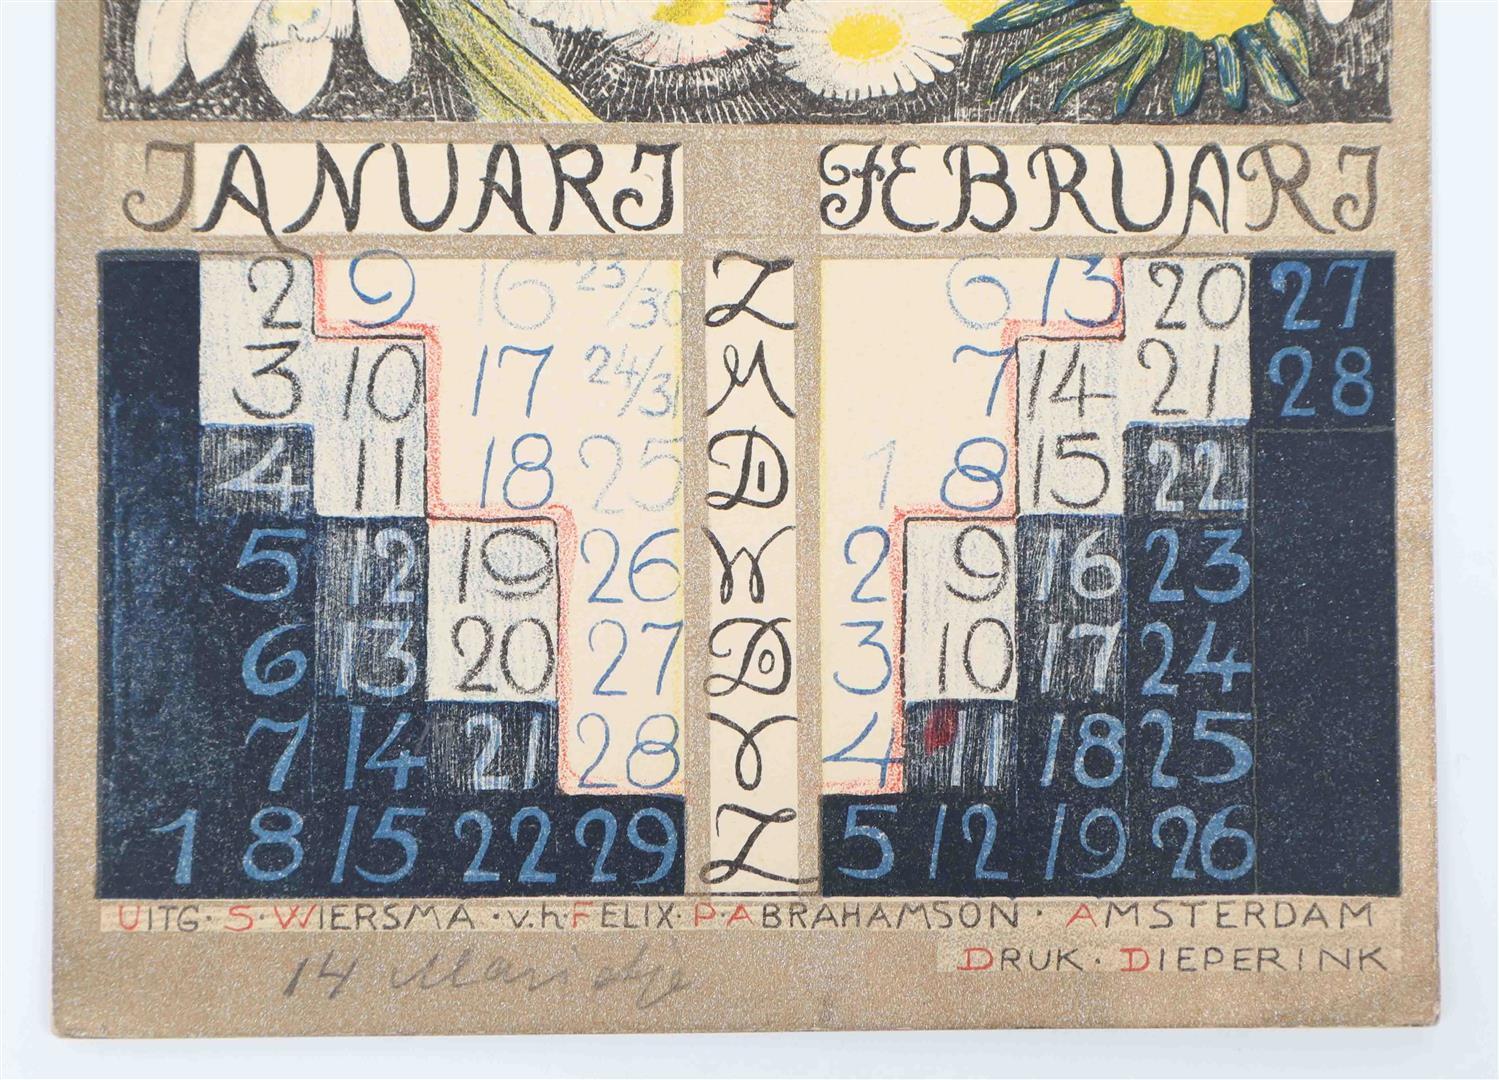 JANUARJ FEBRUARJ
2 9 16 23/30 Z 6 13 20 27
3 10 17 24/31 M 7 14 21 28
4 11 18 25 D 1 8 15 22
5 12 19 26 W 2 9 16 23
6 13 20 27 D 3 10 17 24
7 14 21 28 V 4 11 18 25
1 8 15 22 29 Z 5 12 19 26
UITG· S·WIERSMA ·v.h·FELIX·P·ABRAHAMSON· AMSTERDAM
DRUK· DIEPERINK
14